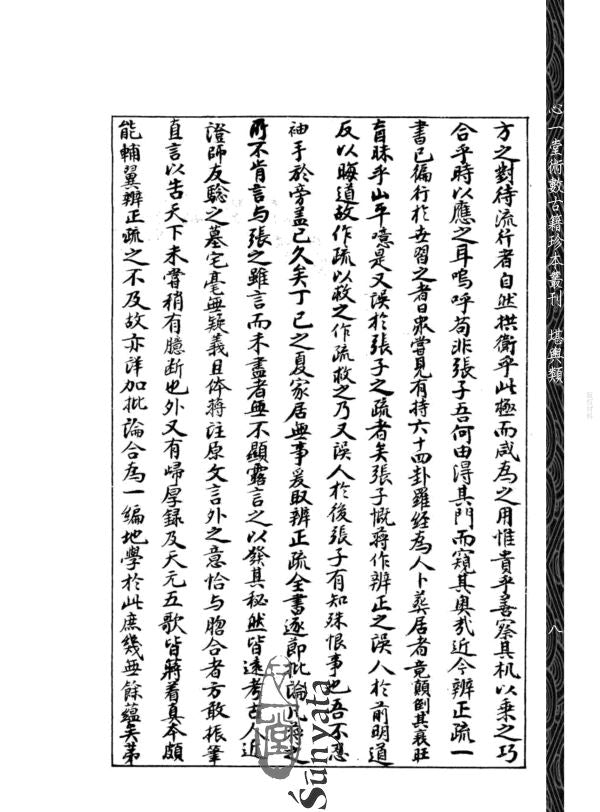 心一堂術數古籍珍本叢刊 堪輿類
八
方之對待流行者自然拱衛乎此極而咸為之用惟貴乎善察其机以乘之巧
合乎時以應之耳嗚呼苟非張子吾何由得其門而窺其奧哉近今辨正疏一
書已徧行於世習之者日眾嘗見有持六十四卦羅經為人卜葬居者竟顛倒其衰旺
盲昧乎山平噫是又誤於張子之疏者矣張子慨蔣作辨正之誤人於前明道
反以晦道故作疏以救之作疏救之乃又誤人於後張子有知殊恨事也吾不忍
袖手於旁盖已久矣丁巳之夏家居無事爰取辨正疏全書逐節批論凡蔣之
所不肯言与張之雖言而未盡者無不顯露言之以發其秘然皆遠考古人近
證師友騐之墓宅毫無疑義且体蔣注原文言外之意恰与脗合者方敢振筆
直言以告天下未嘗稍有臆断也外又有歸厚録及天元五歌皆蔣着真本頗
能輔翼辨正疏之不及故亦详加批論合為一編地學於此庶幾無餘蘊矣苐
心一堂
Śūnyata